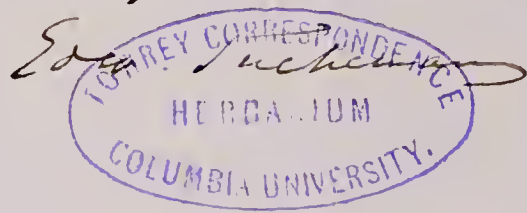 Edw. Tuckerman
TORREY CORRESPONDENCE
HERBARIUM
COLUMBIA UNIVERSITY.